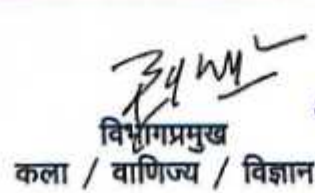 विभागप्रमुख
कला / वाणिज्य / विज्ञान